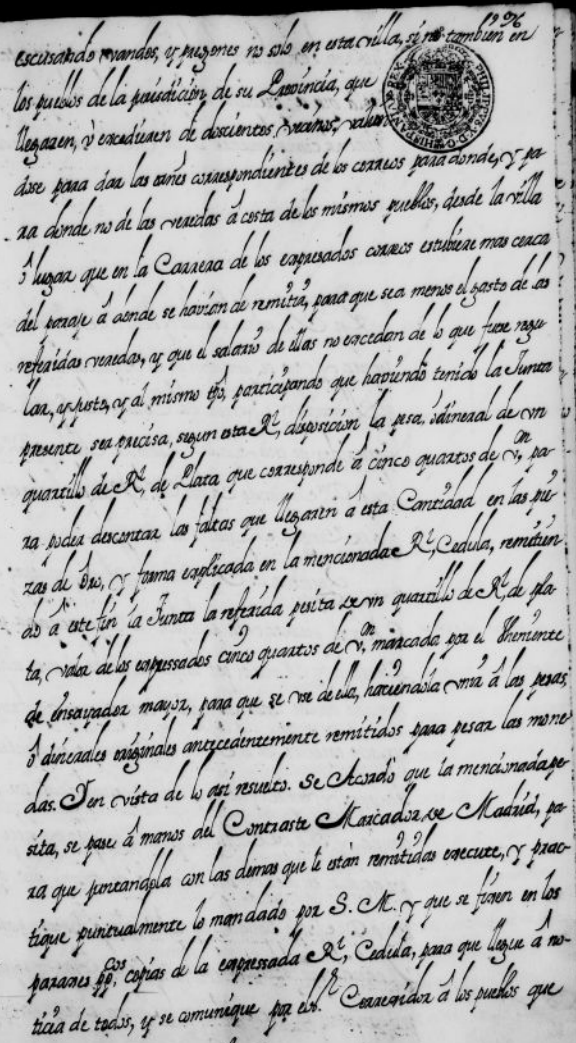 escusando vandos, y pregones no solo en esta villa, sino tambien en
los pueblos de la jurisdicion de su Provincia, que
llegaren, ò excedieren de doscientos vecinos, valien
dose para dar las correspondientes de los correos para donde, y pa-
ra donde no de las veredas â costa de los mismos pueblos, desde la villa
ô lugar que en la Carrera de los expresados correos estubiere mas cerca
del paraje â donde se havian de remitir, para que sea menos el gasto de las
referidas veredas, y que el salario de ellas no excedan de lo que fuere regu
lar, y justo, y al mismo tpô, participando que haviendo tenido la Junta
presente ser precisa, segun esta Rl, disposicion la pesa, ô dineral de vn
quartillo de Rl, de Plata que corresponde â cinco quartos de vn, pa-
ra poder descontar las faltas que llegaren â esta Cantidad en las pie
zas de oro, y forma explicada en la mencionada Rl, Cedula, remitien
do â este fin la Junta la referida pesita de vn quartillo de Rl, de pla-
ta, valor de los expressados cinco quartos de vn, marcada por el Theniente
de ensayador mayor, para que se vse de ella, haciendola vnir â las pesas,
ô dinerales originales antecedentemente remitidos para pesar las mone
das. Y en vista de lo asi resuelto. Se Acordò que la mencionada pe-
sita, se pase â manos del Contraste Marcador de Madrid, pa-
ra que juntandola con las demas que le estàn remitidas execute, y prac-
tique puntualmente lo mandado por S. M. y que se fixen en los
parages ppcos, copias de la expressada Rl, Cedula, para que llegue â no-
ticia de todos, y se comunique por el Sr. Corregidor â los pueblos que